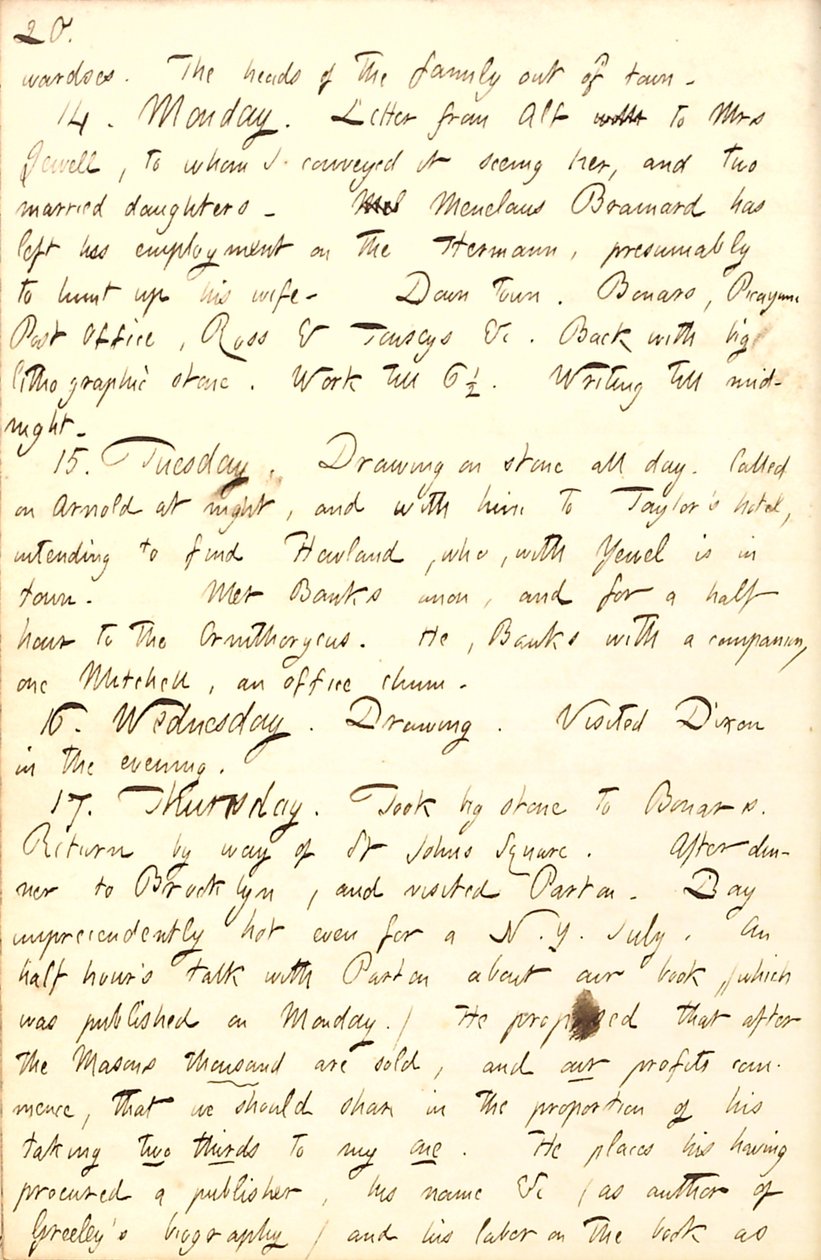 20.
wardses. The heads of the family out of town -
14. Monday. Letter from Alf with to Mrs
Jewell, to whom I conveyed it seeing her, and two
married daughters - Mel Menelaus Brainard has
left his employment on the Hermann, presumably
to hunt up his wife - Down town. Bonars, Picayune
Post Office, Ross & Touseys &c. Back with big
lithographic stone. Work till 6 1/2. Writing till mid-
night -
15. Tuesday. Drawing on stone all day. Called
on Arnold at night, and with him to Taylor's hotel,
intending to find Howland, who, with Yewel is in
town. Met Banks anon, and for a half
hour to the Ornithorycus. He, Banks with a companion,
one Mitchell, an office chum -
16. Wednesday. Drawing. Visited Dixon
in the evening.
17. Thursday. Took big stone to Bonars.
Return by way of St Johns Square. After din-
ner to Brooklyn, and visited Parton. Day
unprecendently hot even for a N. Y. July. An
half hour's talk with Parton about our book, (which
was published on Monday.) He proposed that after
the Masons thousand are sold, and our profits com-
mence, that we should share in the proportion of his
taking two thirds to my one. He places his having
procured a publisher, his name &c (as author of
Greeley's biography) and his labor on the book as